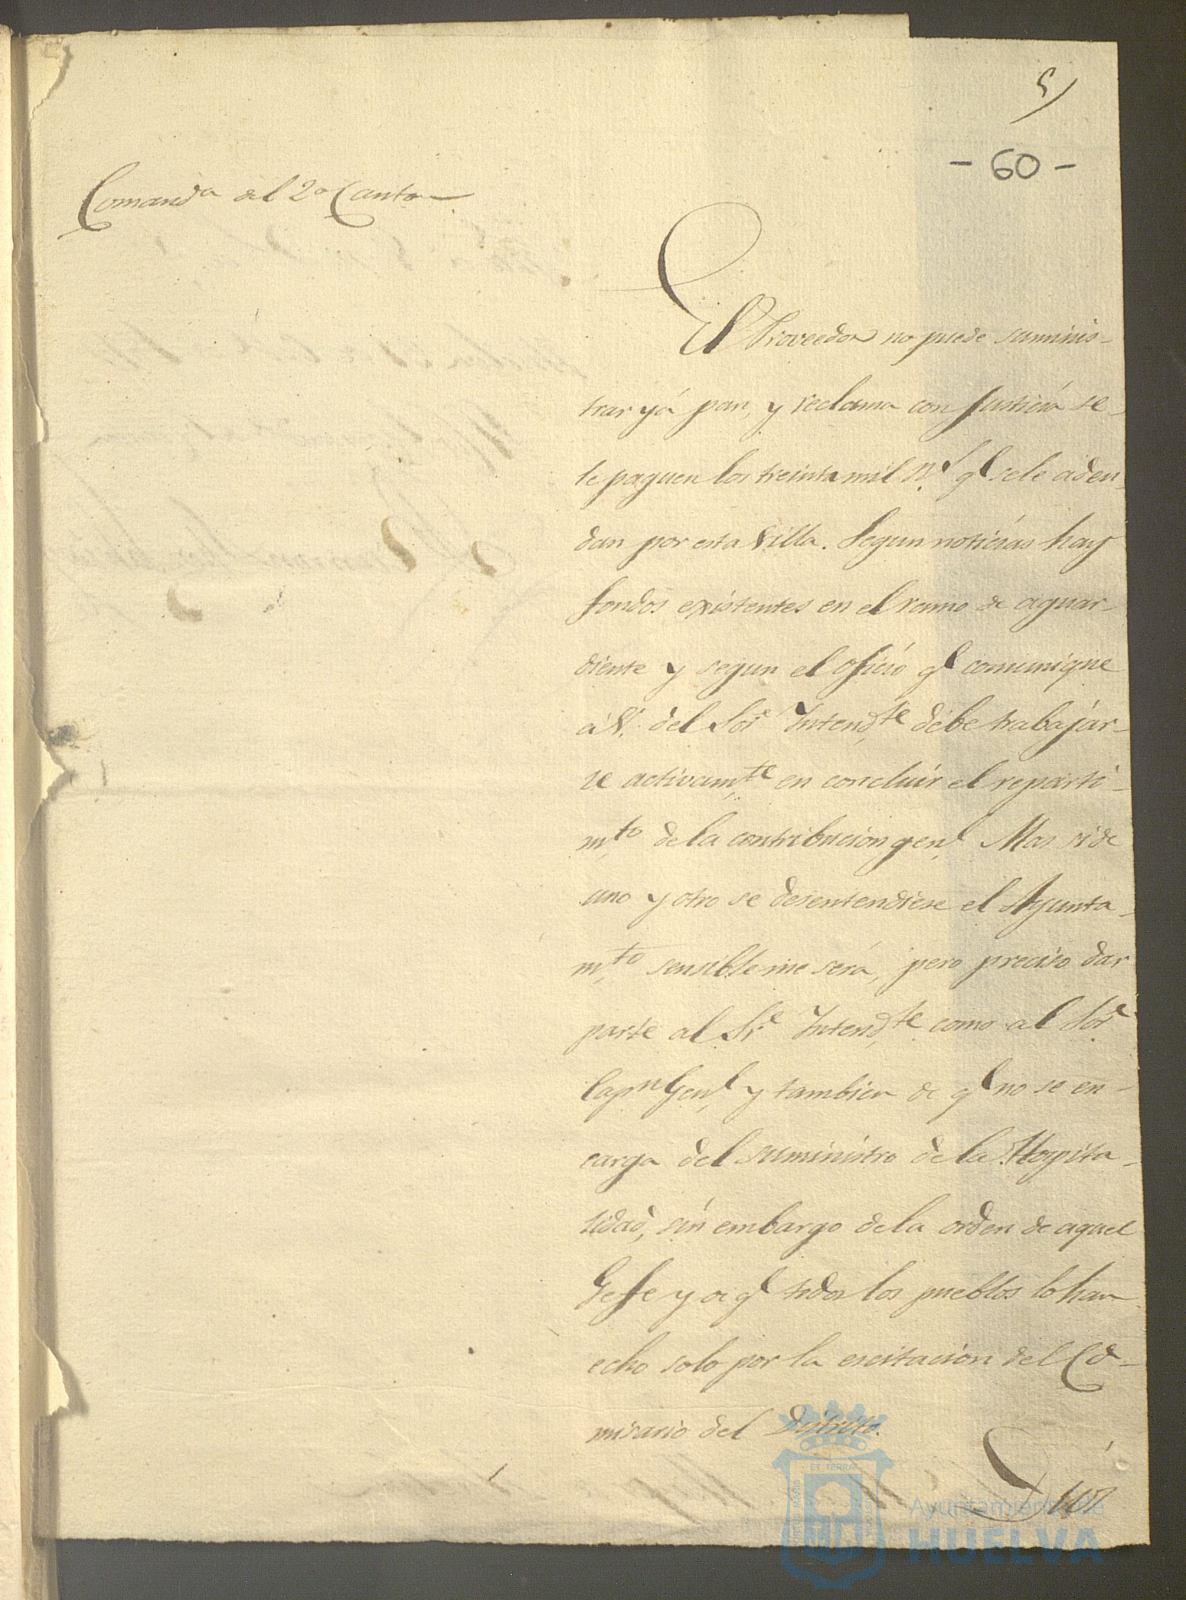 5)
- 60 -
Comand.a del 2.o Canton
El Proveedor no puede suminis-
trar yá pan, y reclama con Justicia se
le paguen los treinta mil r.s q.e se le adeu-
dan por esta Villa. Segun noticias hay
fondos existentes en el ramo de aguar-
diente y segun el oficio q.e comunique
a V. del Sor. Intend.te debe trabajar-
se activam.te en concluir el reparti-
m.to de la contribucion gen.l Mas si de
uno y otro se desentendiese el Ayunta-
m.to sensible me será, pero preciso dar
parte al Sr. Intend.te como al Sor.
Cap.n Gen.l y tambien de q.e no se en-
carga del suministro de la Hospita-
lidad, sin embargo de la orden de aquel
Gefe y de q.e todos los pueblos lo han
echo solo por la escitacion del Co-
misario del Distrito.
Dios
Ayuntamiento de
HUELVA